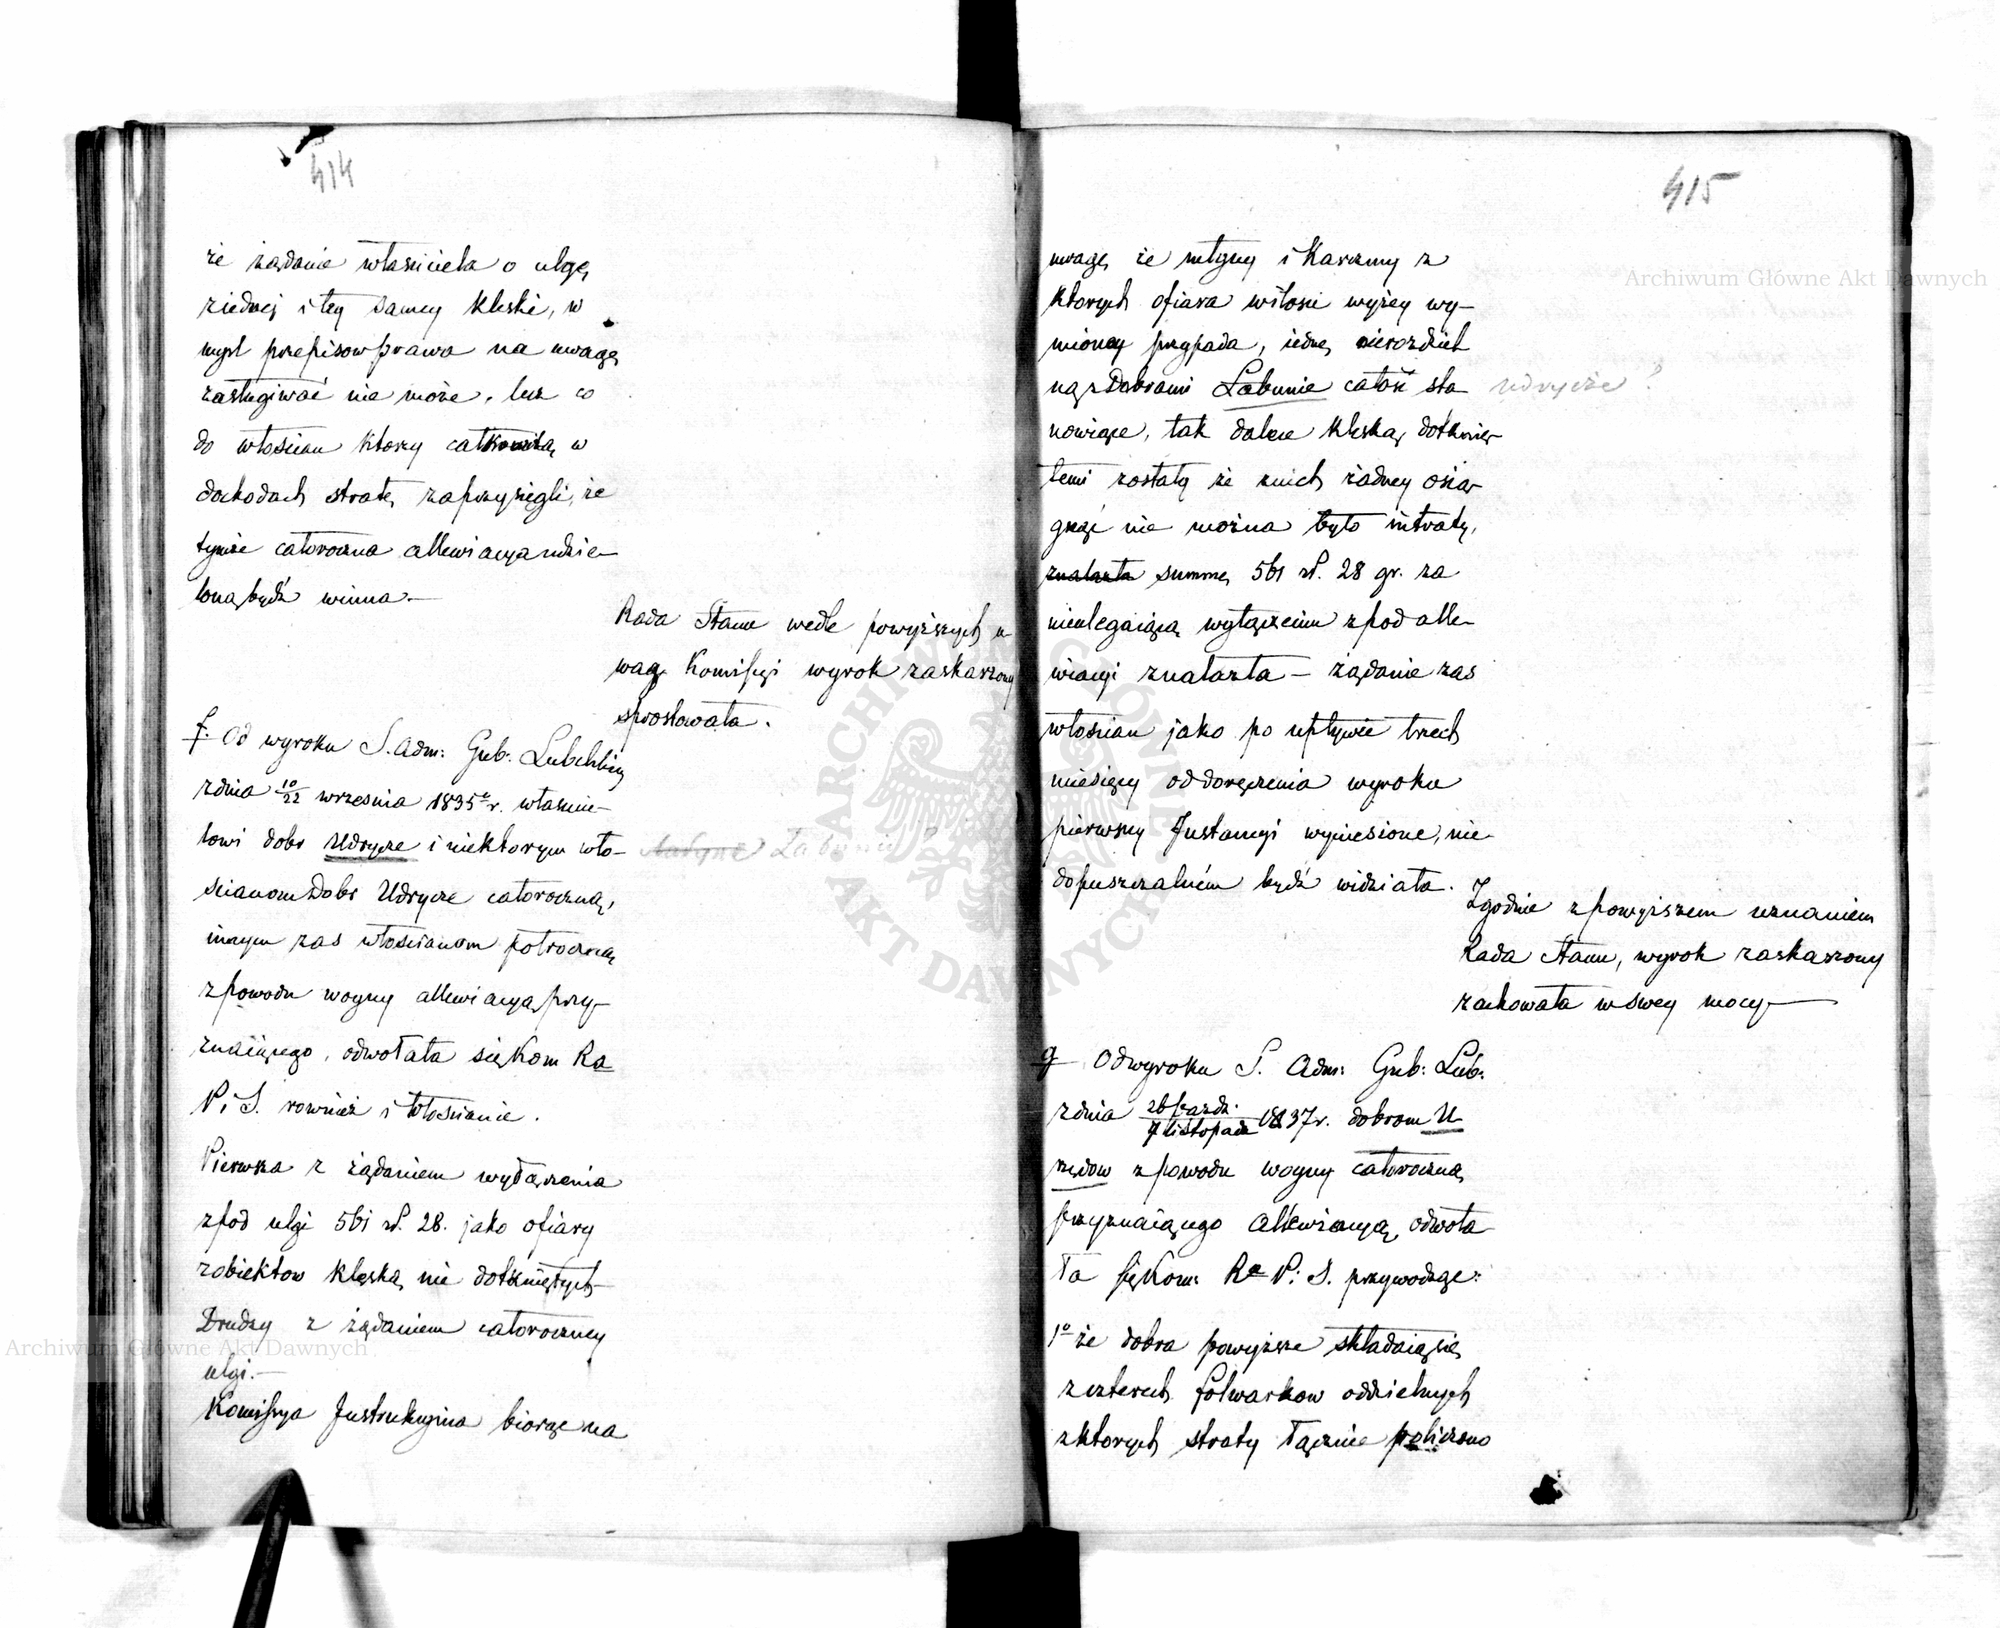 414
że żądanie właściciela o ulgę
ziedney i tey samey klęski, w
myśl przepisow prawa na uwagę
zasługiwać nie może, lecz co
do włościan ktorzy całkowitą w
dochodach stratę zaprzysięgli, że
tymże całoroczna allewiacya udzie-
loną będź winna.—
Rada Stanu wedle powyższych u
wag Komissyi wyrok zaskarżony
sprostowała.
f. Od wyroku S. Adm: Gub: Lubelskiey
zdnia 10/22 września 1835 r. właście-
lowi dobr Udrycze i niektorym wło-
Łabunie ?
ścianom Dobr Udrycze całoroczną,
innym zas włościanom połroczną
zpowodu woyny allewiacyą przy-
znaiącego, odwołała się Kom Ra
P i S. rownież i Włościanie.
Pierwsza z żądaniem wyłączenia
zpod ulgi 561 zł. 28. jako ofiary
zobiektow klęską nie dotkniętych
Drudzy z żądaniem całoroczney
ulgi.—
Komissya Instrukcyina biorąc na
415
uwagę że młyny i Karczmy z
ktorych ofiara wilosci wyżey wy-
mioney przypada, iedną nierozdziel
ną z Dobrami Łabunie całość sta
Udrycze ?
nowiące, tak dalece klęską dotknię-
temi zostały że znich żadney osią-
gnąć nie można było intraty,
znalazła summę 561 zł. 28 gr. za
nieulegaiącą wyłączeniu zpod alle-
wiacyi znalazła — żądanie zas
włościan jako po upływie trzech
miesięcy od doręczenia wyroku
pierwszey Instancyi wyniesione, nie-
dopuszczalném będź widziała.
Zgodnie zpowyższem uznaniem
Rada Stanu, wyrok zaskarżony
zachowała w swey mocy—
g Od wyroku S. Adm: Gub: Lub:
zdnia 26 pazdz./7 listopada 1837 r. dobrom U
rzędow zpowodu woyny całoroczną
przyznaiącego allewiacyą, odwoła
ła się Kom: Ra P: i S. przywodząc:
1o że dobra powyższe składaią się
z czterech folwarkow oddzielnych
zktorych straty łącznie policzono
Archiwum Główne Akt Dawnych
Archiwum Główne Akt Dawnych
ARCHIWUM GŁÓWNE AKT DAWNYCH